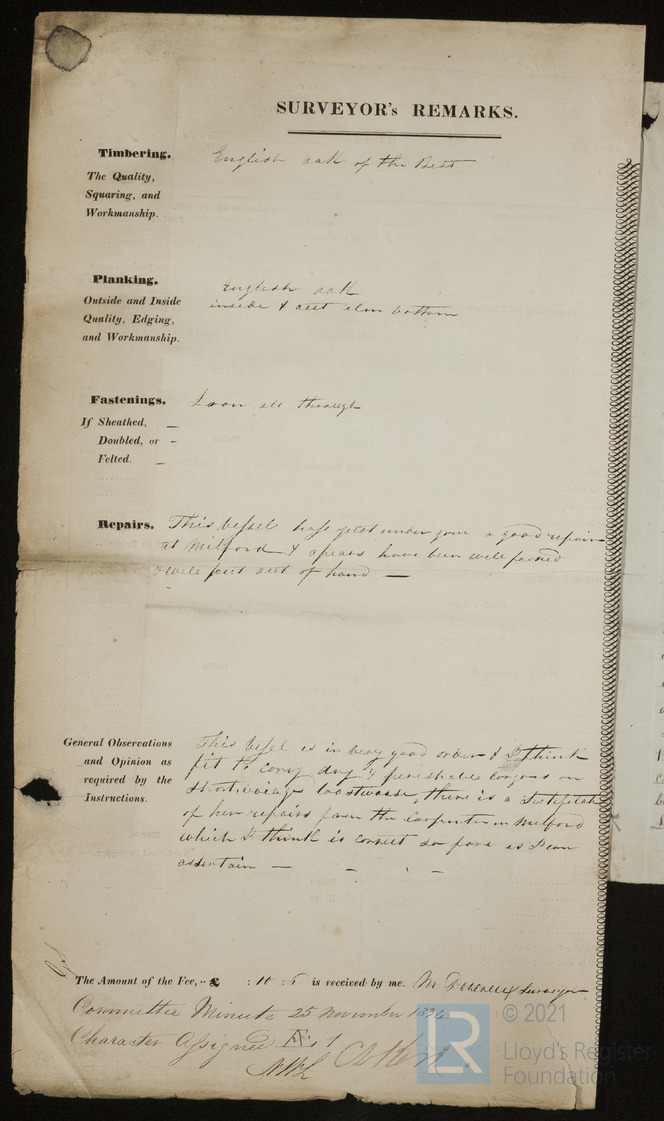 SURVEYOR's REMARKS.
Timbering.
The Quality,
Squaring, and
Workmanship.
English oak of the Best
Planking.
Outside and Inside
Quality, Edging,
and Workmanship.
English oak
inside & out elm bottom
Fastenings.
If Sheathed, —
Doubled, or -
Felted. —
Iron all through
Repairs.
This vessel has just under gone a good repair
at Milford & apears have been well
& well put out of hand —
General Observations
and Opinion as
required by the
Instructions.
This vessel is in very good order & I think
fit to carry dry & perishable cargoes on
short coastwasse, there is a
of her repairs from the Carpenter in Milford
which I think is correct so fare as I can
assertain — - -
The Amount of the Fee,-- £ : 10 : is received by me. Surveyor
Committee Minute 25 November
Character Assigned 1
© 2021
LR
Lloyd's Register
Foundation